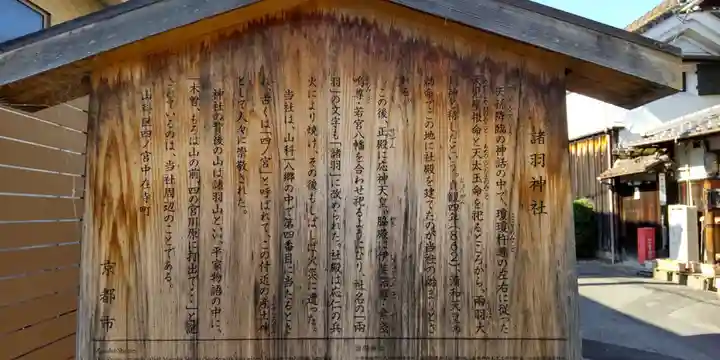 諸羽神社
天孫降臨の神話の中で、瓊瓊杵尊の左右に従った
天児屋根命と天太玉命を祀るところから、両羽大
明神と称したという。貞観四年(862)、清和天皇の
勅命でこの地に社殿を建てたのが当社の始まりとさ
れる。
この後、正殿に応神天皇、脇殿に伊奘諾尊・素盞
嗚尊・若宮八幡を合わせ祀るようになり、社名の「両
羽」の文字も「諸羽」に改められた。社殿は応仁の兵
火により焼け、その後もしばしば火災に遭った。
当社は、山科一八郷の中で第四番目に当たるとさ
れ、古くは「四ノ宮」と呼ばれて、この付近の産土神
として人々に崇敬された。
神社の背後の山は諸羽山といい、平家物語の中に、
「木曽、もろは山の前、四の宮川原に打出で・・・」と記
されているのは、当社周辺のことである。
山科区四ノ宮中在寺町
京都市